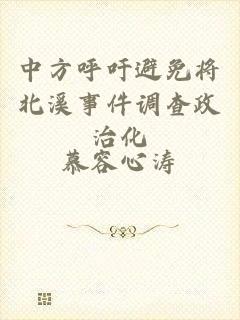 中方呼吁避免将
北溪事件调查政
治化
慕容心涛